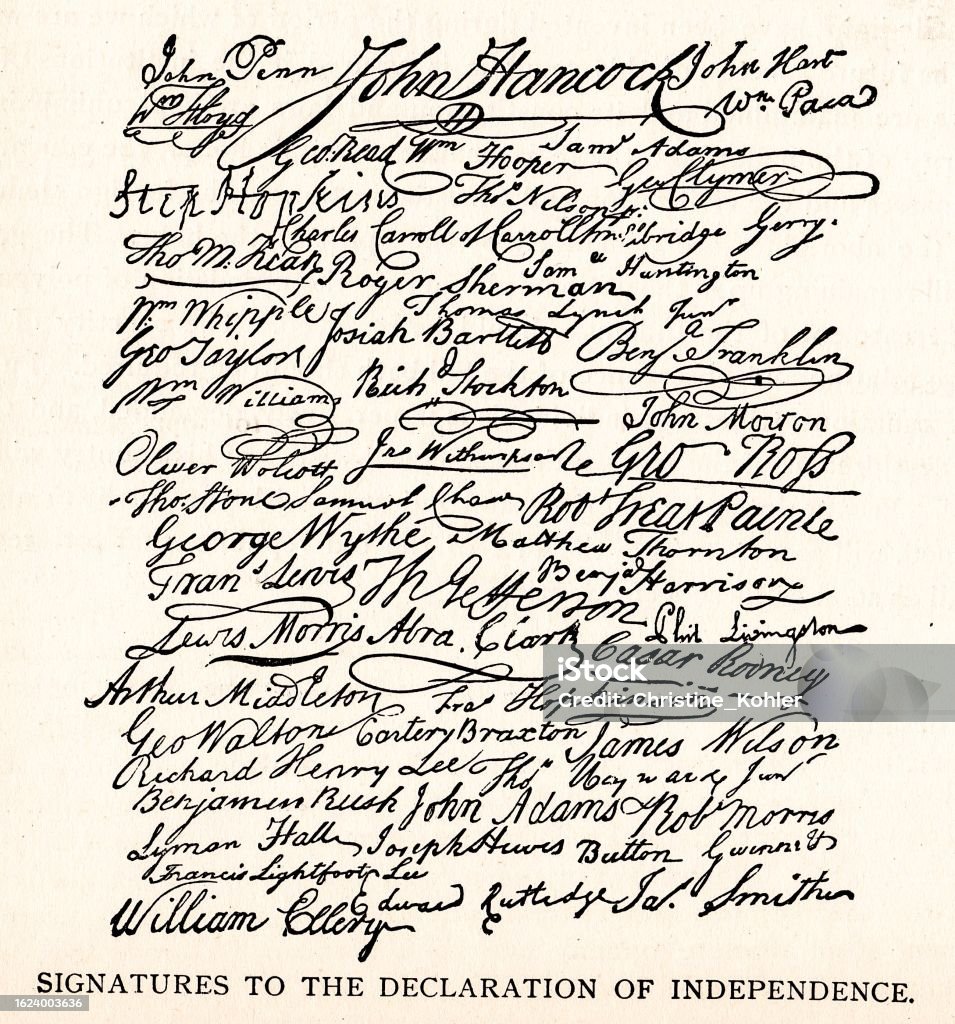 John Penn John Hancock John Hart
Wm Floyd Wm. Paca
Geo. Read Wm Hooper Sam Adams
Step Hopkins Thos Nelson jr. Geo Clymer
Charles Carroll of Carrollton Elbridge Gerry.
Tho M. Kean Roger Sherman Saml Huntington
Wm Whipple Thomas Lynch Junr
Josiah Bartlett Benj Franklin
Geo Taylor
Wm Williams Richd Stockton
John Morton
Oliver Wolcott Jno Witherspoon Geo Ross
Thos. Stone Samuel Chase Robt Treat Paine
George Wythe Matthew Thornton
Frans Lewis Th Jefferson Benja Harrison
Lewis Morris Abra. Clark Phil Livingston
Caesar Rodney
Arthur Middleton Fras Hopkinson
Geo Walton Carter Braxton James Wilson
Richard Henry Lee Thos Heyward Junr
Benjamin Rush John Adams Robt Morris
Lyman Hall Joseph Hewes Button Gwinnett
Francis Lightfoot Lee
William Ellery Edward Rutledge Jas. Smith
SIGNATURES TO THE DECLARATION OF INDEPENDENCE.
iStock
Credit: Christine_Kohler
1624003636